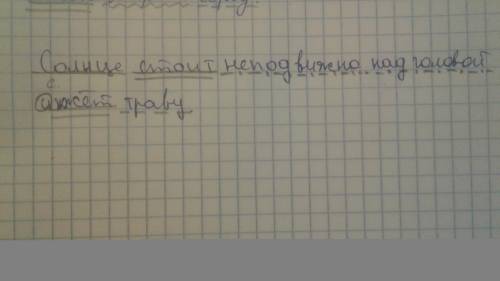 Солнце стоит неподвижно над головой
и жёт траву